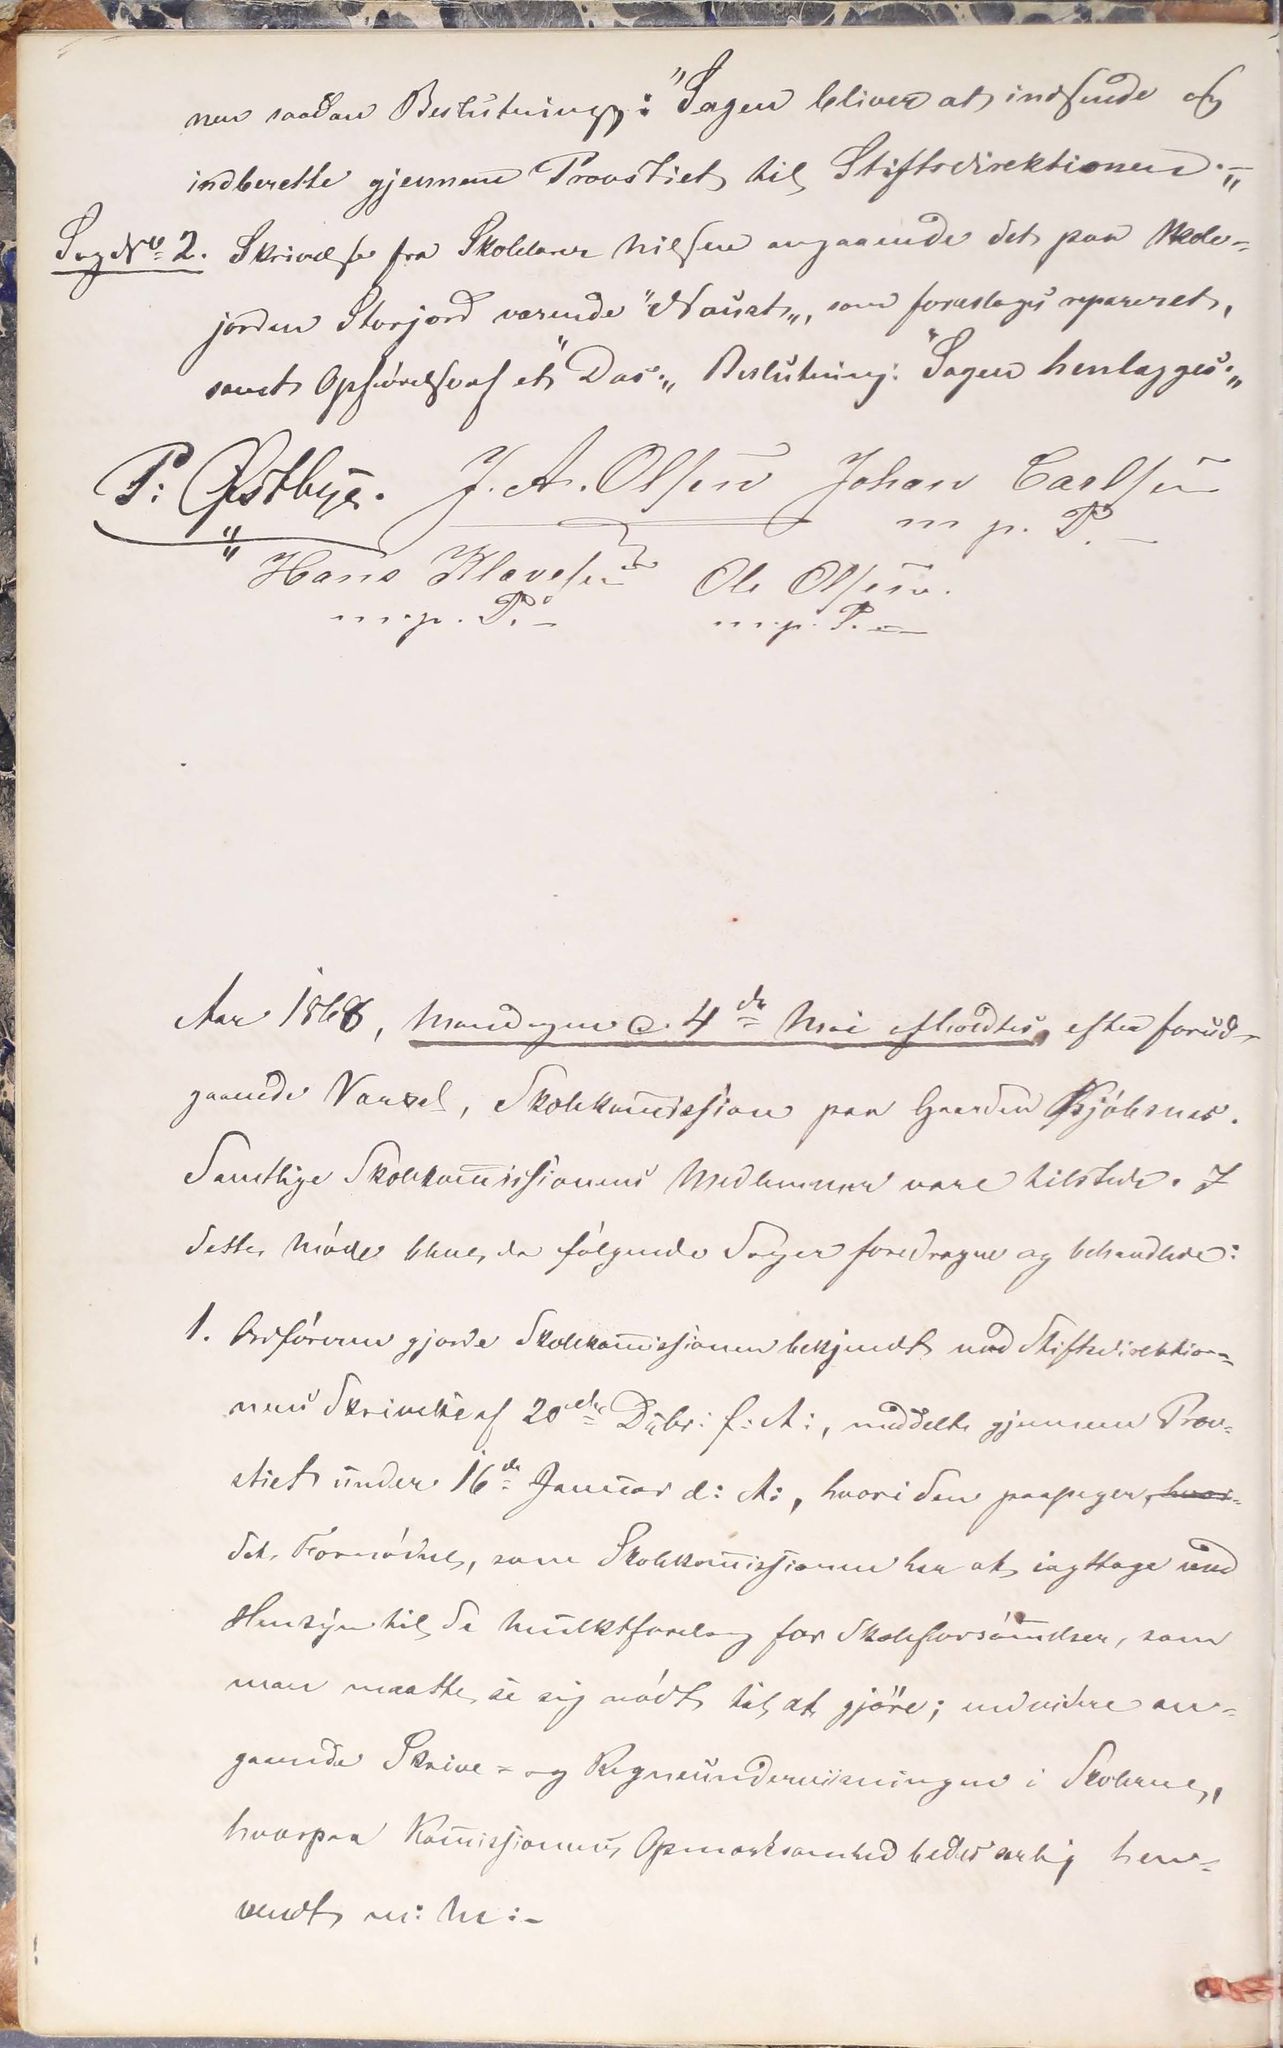 nen saadan Beslutning: "Sagen bliver at indsende og
indberette gjennem Provstiet til Stiftsdirektionen."
Sag No 2. Skrivelse fra Skolelærer Nilsen angaaende det paa Skole-
jorden Storjord værende "Naust", som foreslages repareret,
samt Opførelse af et "Das". Beslutning: "Sagen henlægges."
P: Østbye. J. A. Olsen Johan Carlsen
m. p. P.
Hans Klavesen Ole Olsen.
m. p. P. m. p. P.
Aar 1868, Mandagen d. 4de Mai afholdtes, efter forud-
gaaende Varsel, Skolekommission paa Gaarden Kjøbsnæs.
Samtlige Skolekommissionens Medlemmer vare tilstede. I
dette Møde bleve da følgende Sager foredragne og behandlede:
1. Ordføreren gjorde Skolekommissionen bekjendt med Stiftsdirektio-
nens Skrivelse af 20de Dcbr: f: A:, meddelt gjennem Prov-
stiet under 16de Januar d: A:, hvori den paapeger, hvor-
det Fornødne, som Skolekommissionen har at iagttage med
Hensyn til de Mulktforelæg for Skoleforsømmelser, som
man maatte se sig nødt til at gjöre; endvidere an-
gaaende Skrive- og Regneundervisningen i Skolerne,
hvorpaa Kommissionens Opmærksomhed bedes særlig hen-
vendt m: M:-